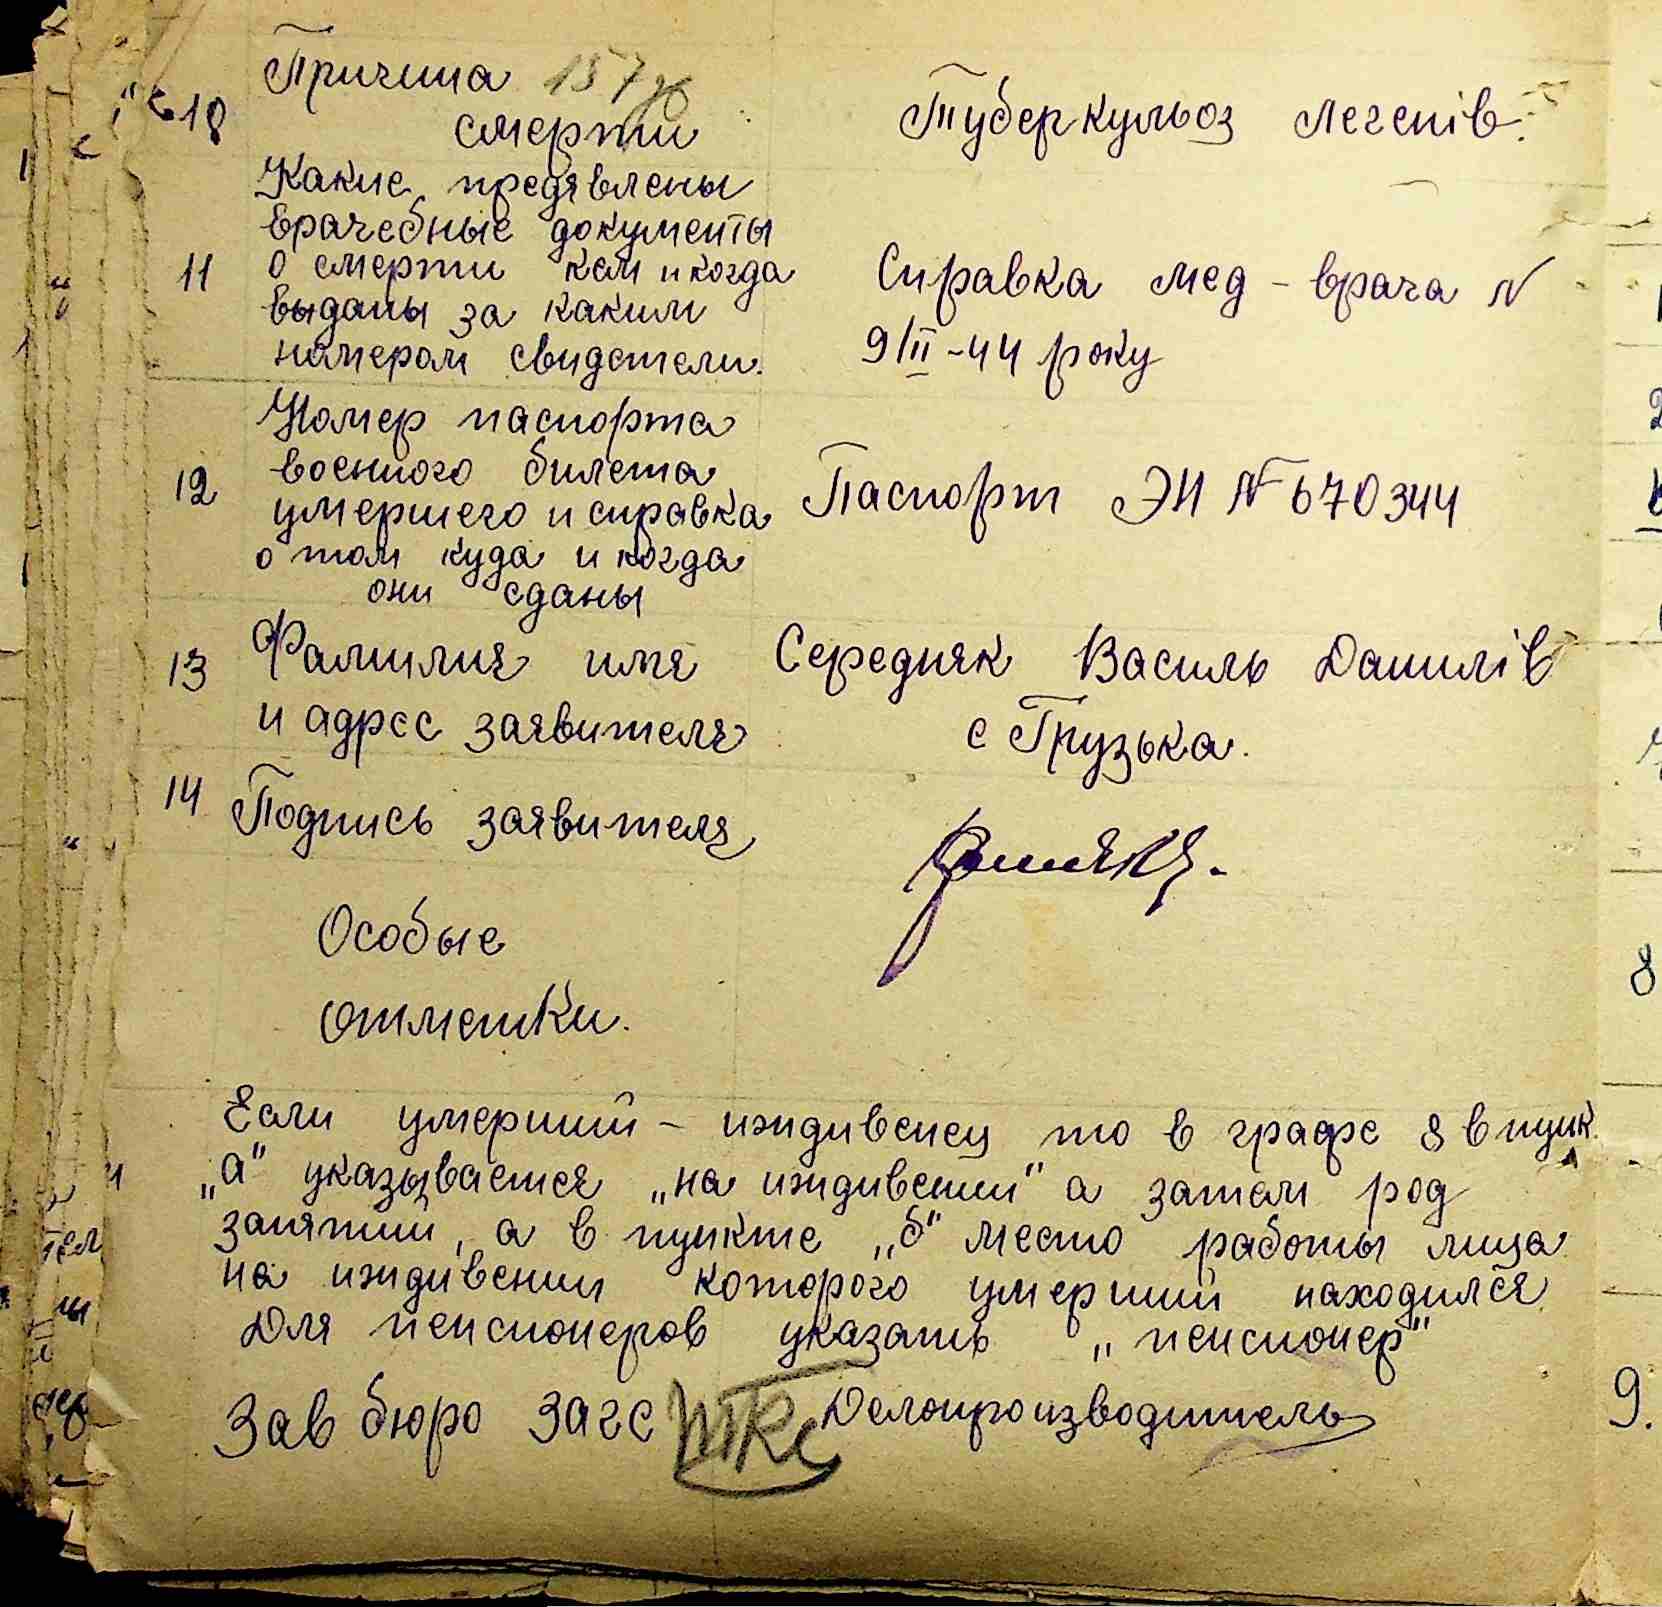 Причина 157
10 смерти Туберкульоз легенів.
Какие предявлены
врачебные документы
11 о смерти кем и когда Справка мед - врача №
выданы за каким
номером свидетели. 9/II - 44 року
Номер паспорта
военного билета
12 умершего и справка Паспорт ЭИ № 670344
о том куда и когда
они сданы
13 Фамилия имя Середняк Василь Данилів
и адрес заявителя с Грузька.
14 Подпись заявителя
Особые
отметки.
Если умерший - иждивенец то в графе 8 в пунк.
„а" указывается „на иждивении" а затем род
занятий, а в пункте „б" место работы лица
на иждивении которого умерший находился
Для пенсионеров указать „пенсионер"
Зав бюро загс Делопроизводитель
8
9.